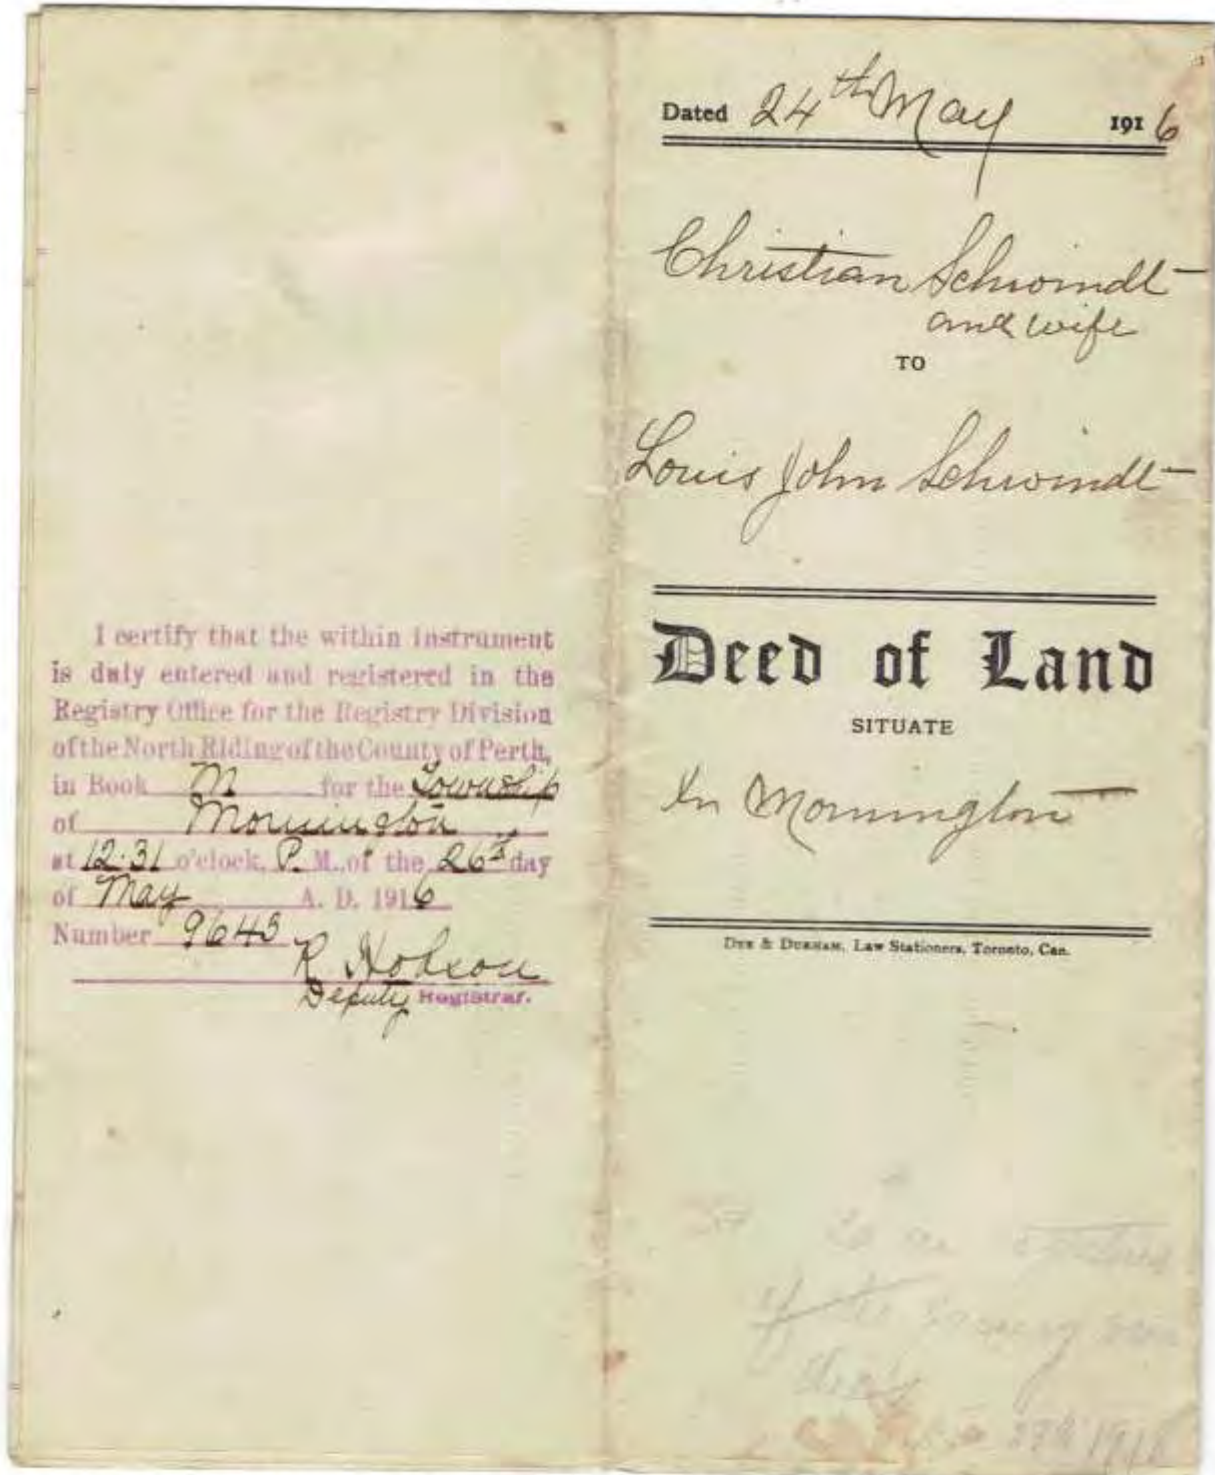 I certify that the within instrument
is duly entered and registered in the
Registry Office for the Registry Division
of the North Riding of the County of Perth,
in Book M for the Township
of Mornington
at 12.31 o'clock, P. M., of the 26th day
of May A. D. 1916
Number 9645
R Hobson
Deputy Registrar.
Dated 24th May 1916
Christian Schwindt
and wife
TO
Louis John Schwindt
Deed of Land
SITUATE
In Mornington
Dye & Durham, Law Stationers, Toronto, Can.
to
of the
27th 191